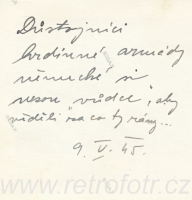 Důstojníci
hrdinné armády
německé si
nesou "vůdce", aby
viděli za co ty rány...
9. V. 45.
www.retrofotr.cz